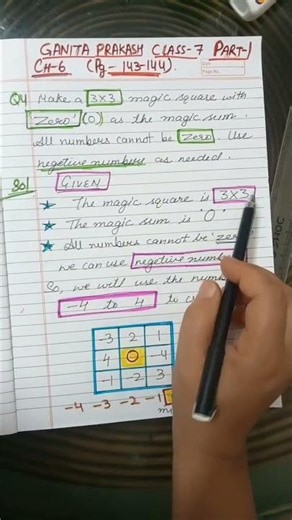 GANITA PRAKASH CLASS-7 PART-1
CH-6 (Pg- 143-144).
Q4 Make a 3x3 magic square with
'Zero' (0) as the magic sum.
All numbers cannot be zero. Use
negetive numbers as needed.
Sol GIVEN
★ The magic square is 3x3
★ The magic sum is '0'
★ All numbers cannot be 'zero'
we can use negetive
So, we will use the
-4 to 4 to
-3 2 1
4 0 -4
-1 -2 3
-4 -3 -2 -1